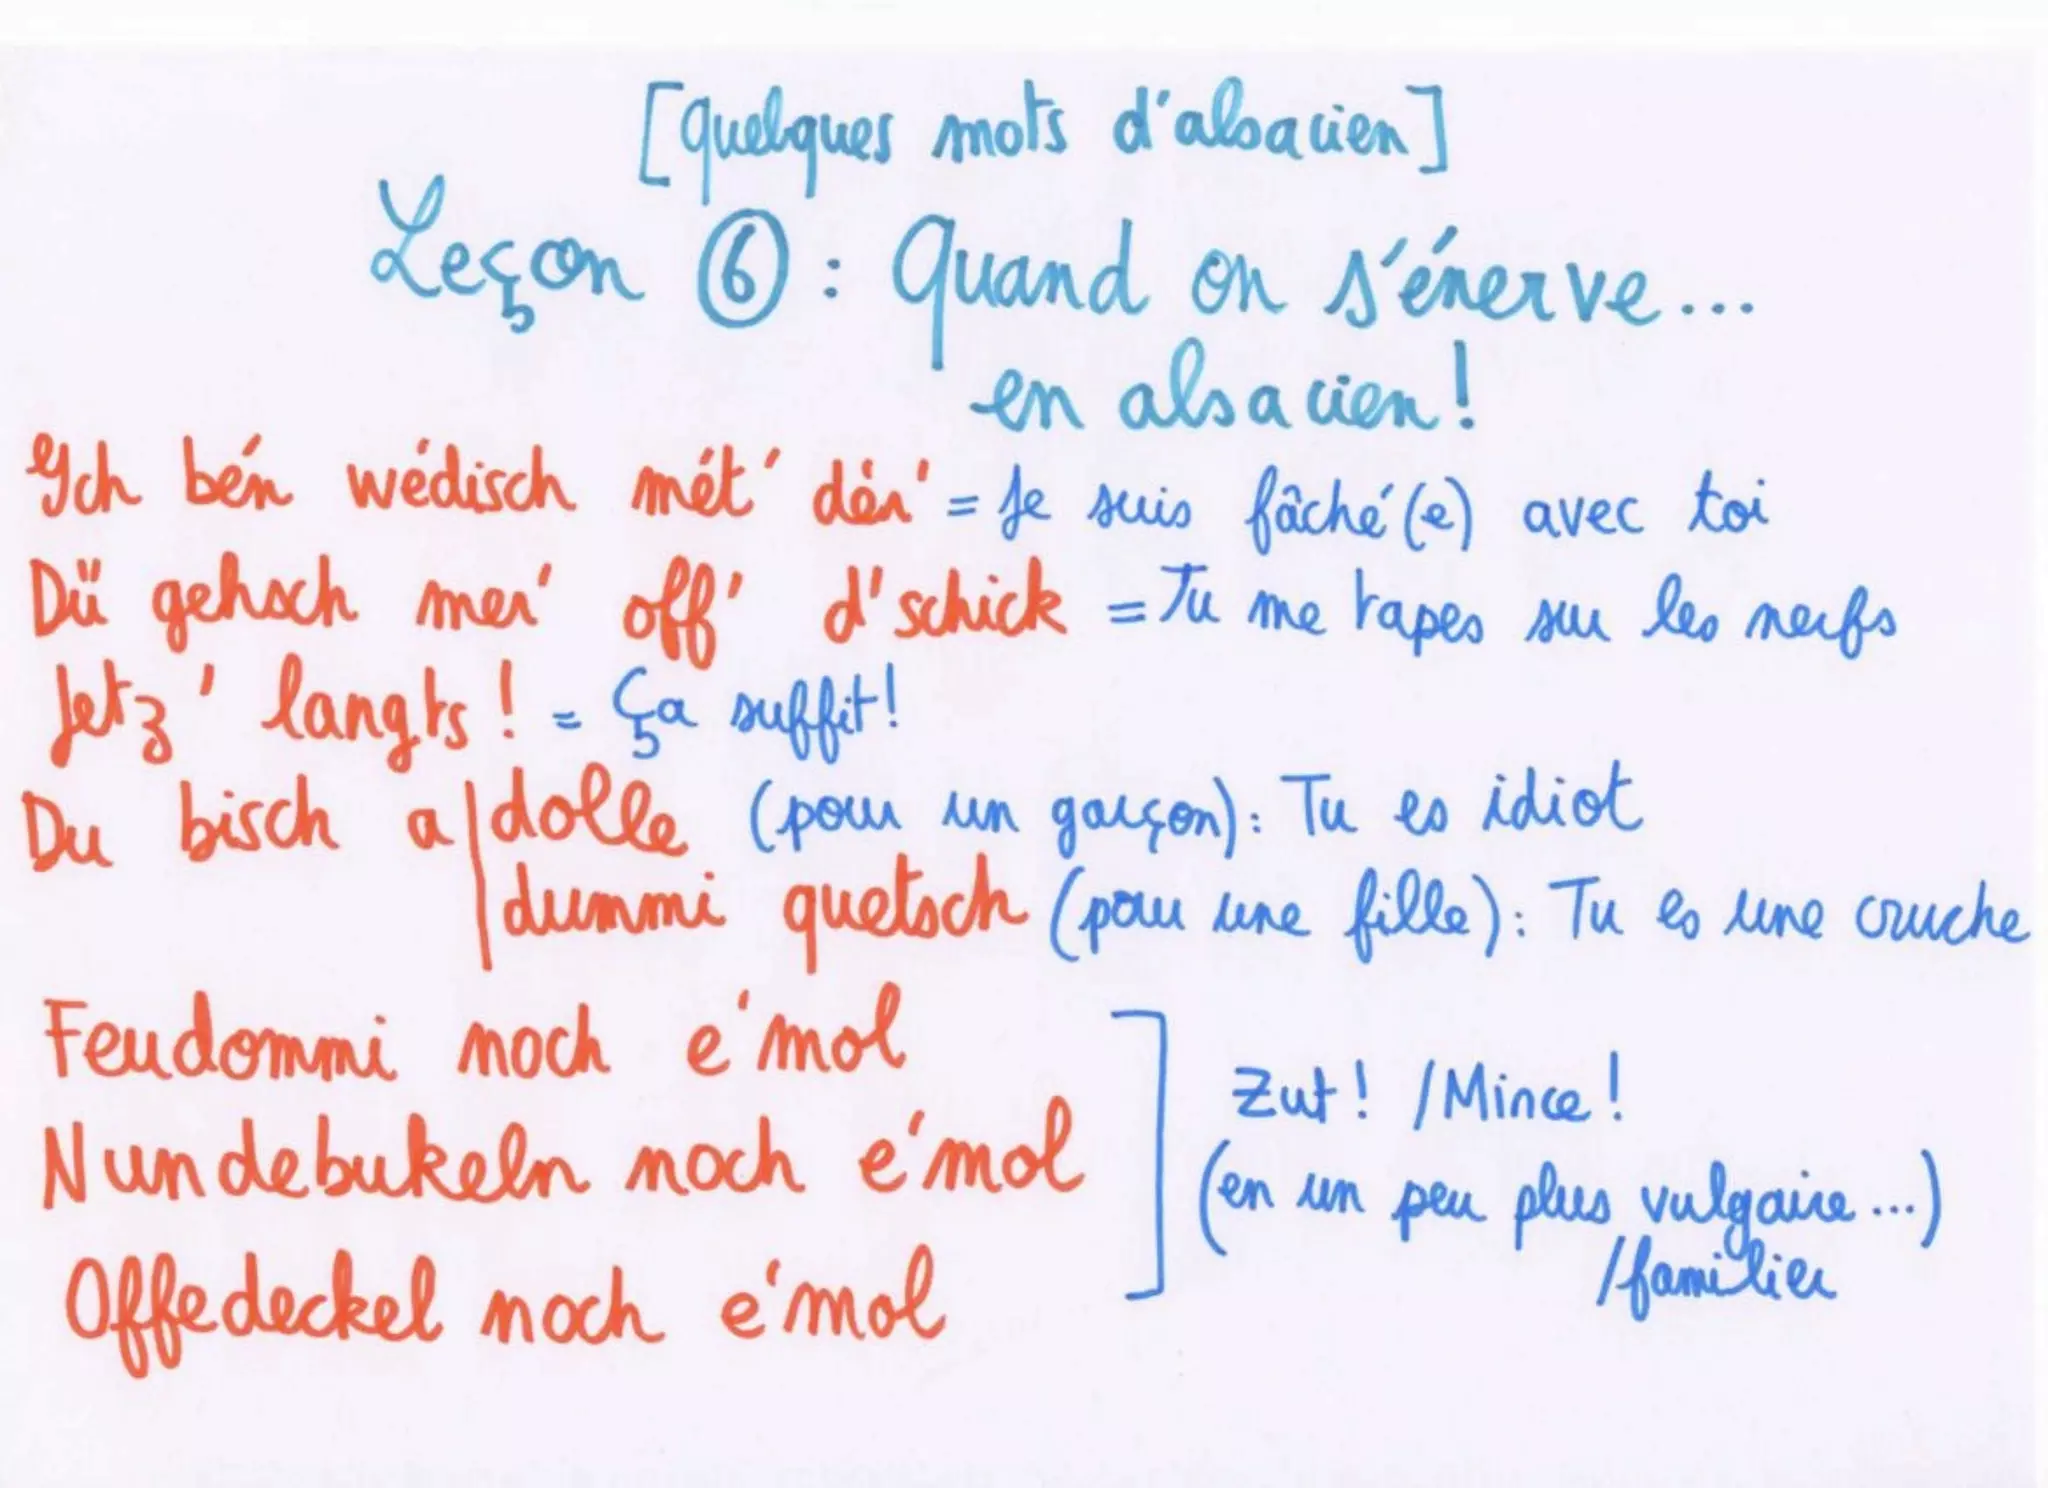 [Quelques mots d'alsacien]
Leçon 6 : Quand on s'énerve...
en alsacien !
Ich bén wédisch mét' dér' = Je suis fâché(e) avec toi
Dü gehsch mer' off' d'schick = Tu me tapes sur les nerfs
Jetz' langts ! = Ça suffit !
Du bisch a | dolle (pour un garçon) : Tu es idiot
dummi quetsch (pour une fille) : Tu es une cruche
Feudommi noch e'mol
Nundebukeln noch e'mol
Offedeckel noch e'mol
Zut ! / Mince !
(en un peu plus vulgaire ...)
/familier